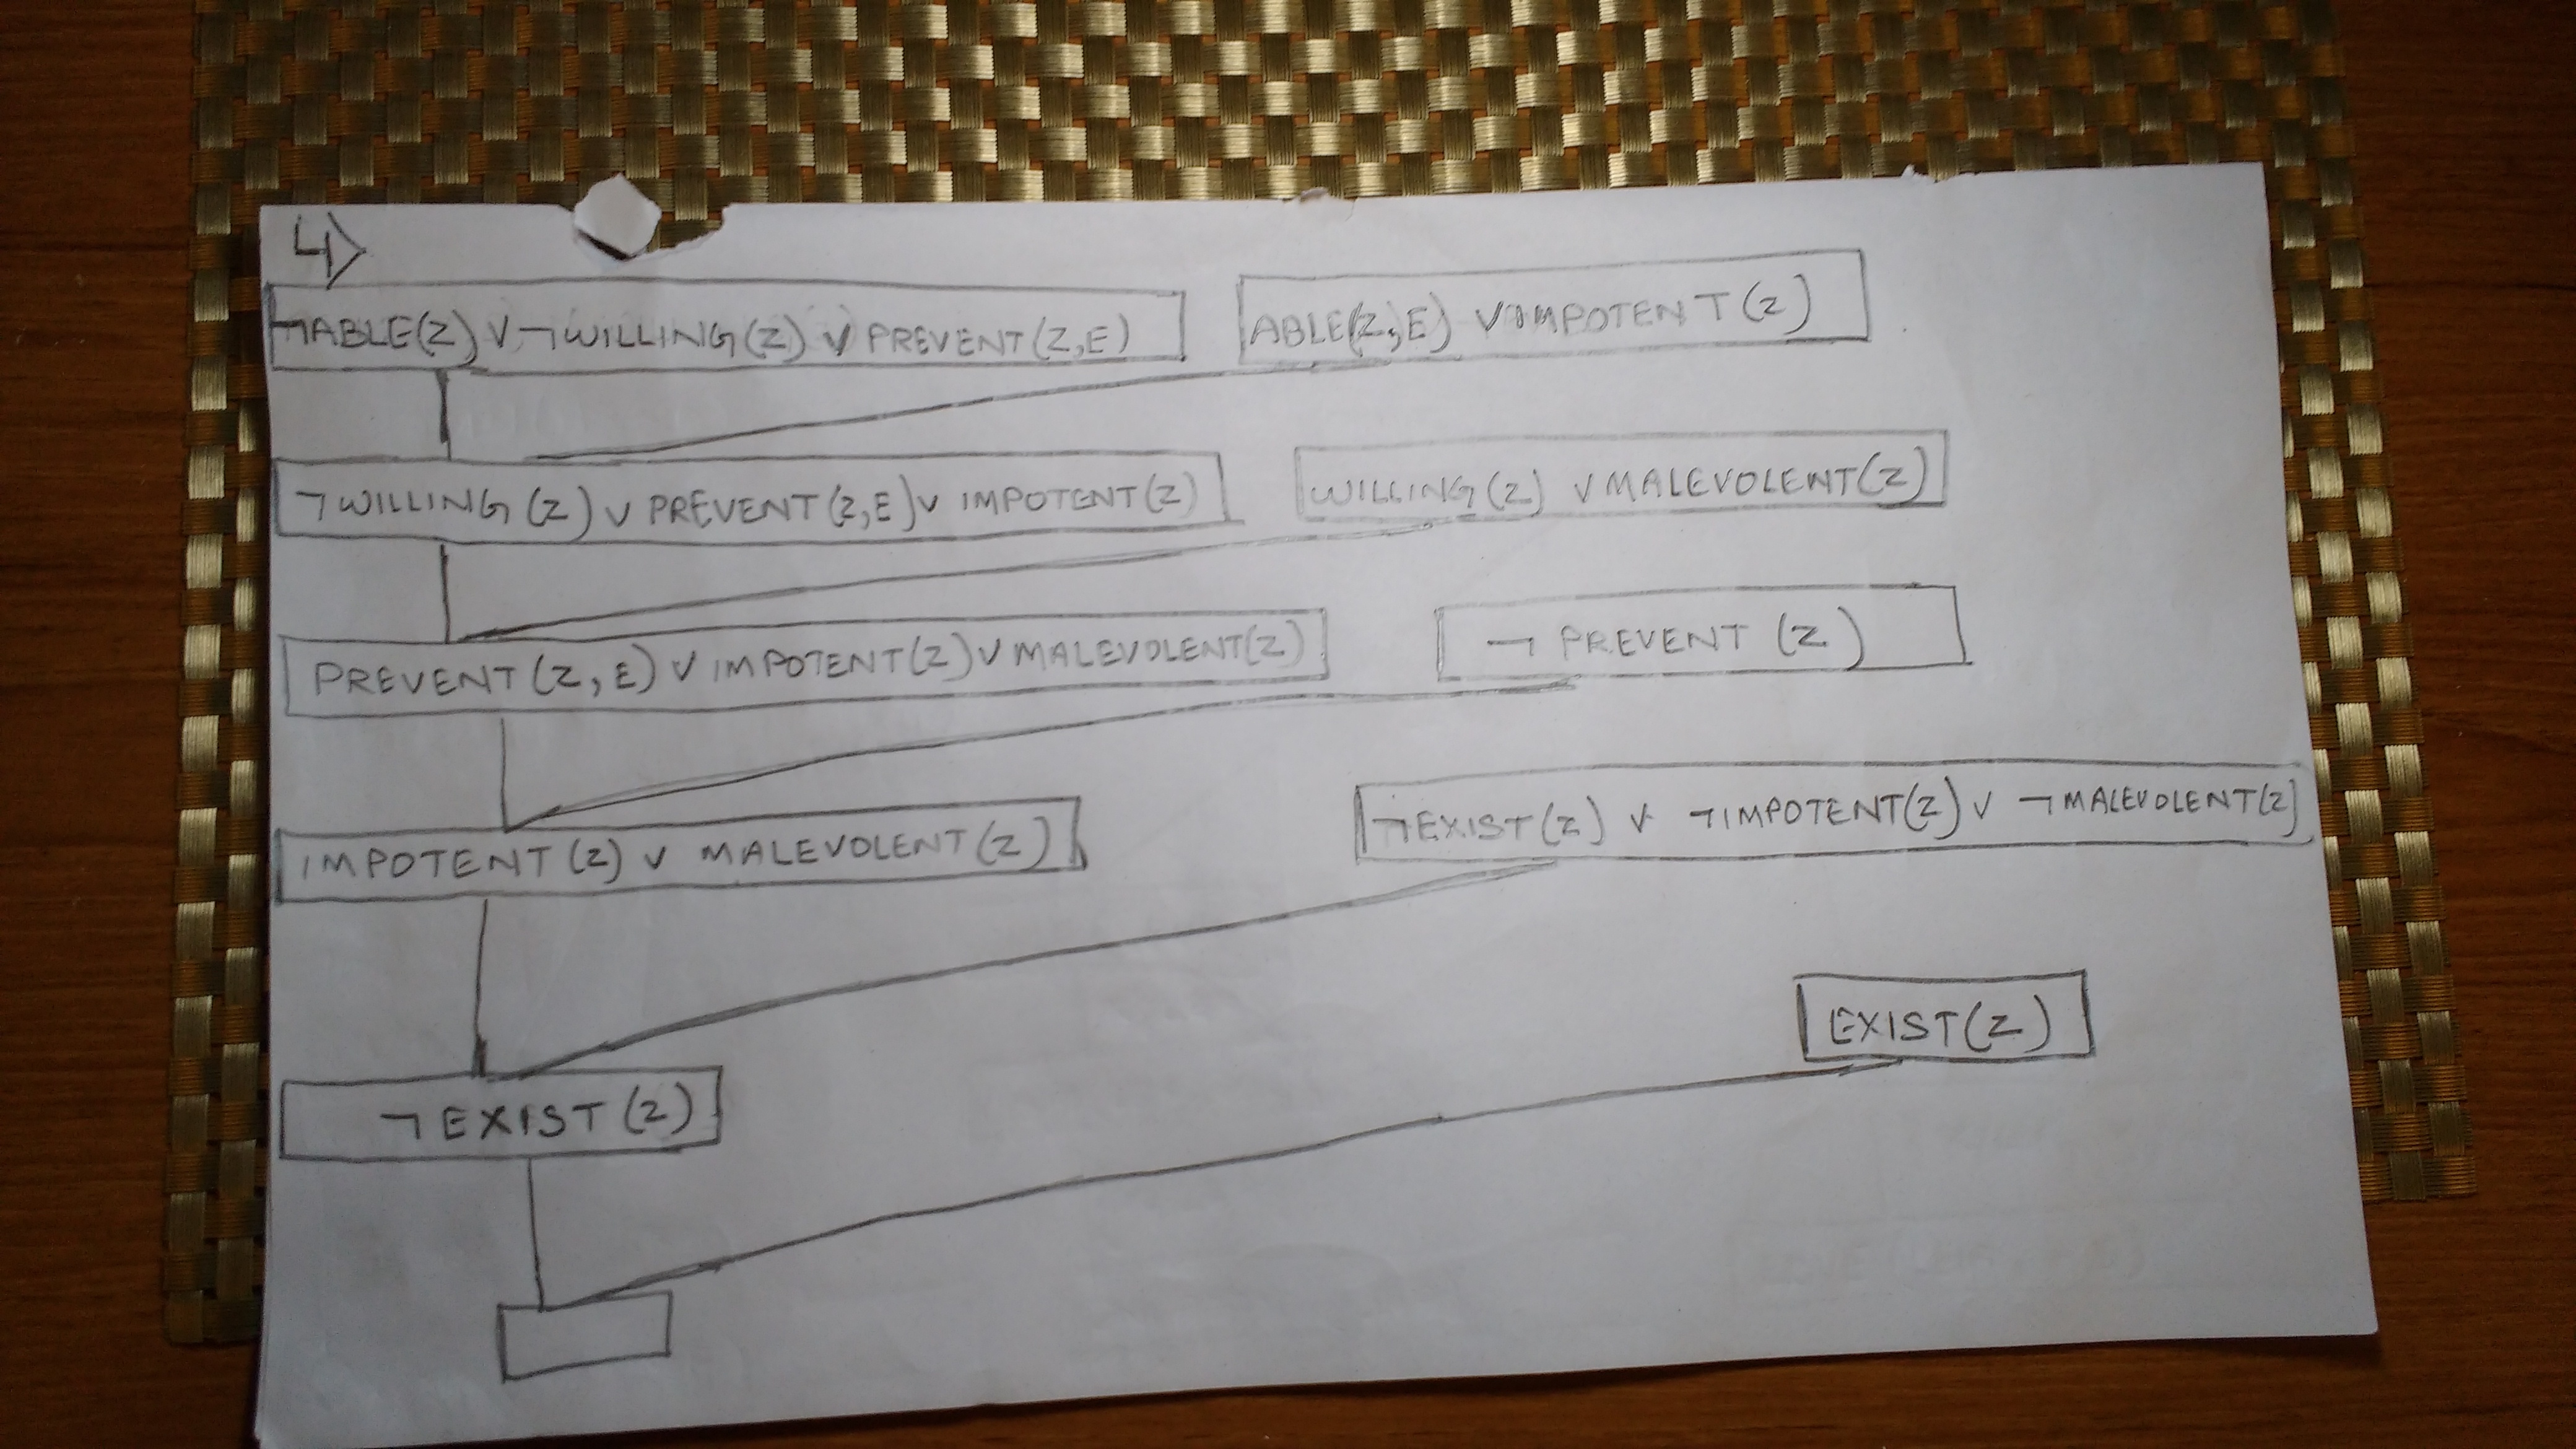 4>
¬ABLE(Z) ∨ ¬WILLING(Z) ∨ PREVENT(Z,E)
ABLE(Z,E) ∨ IMPOTENT(Z)
¬WILLING(Z) ∨ PREVENT(Z,E) ∨ IMPOTENT(Z)
WILLING(Z) ∨ MALEVOLENT(Z)
PREVENT(Z,E) ∨ IMPOTENT(Z) ∨ MALEVOLENT(Z)
¬ PREVENT (Z)
IMPOTENT(Z) ∨ MALEVOLENT(Z)
¬EXIST(Z) ∨ ¬IMPOTENT(Z) ∨ ¬MALEVOLENT(Z)
EXIST(Z)
¬EXIST(Z)